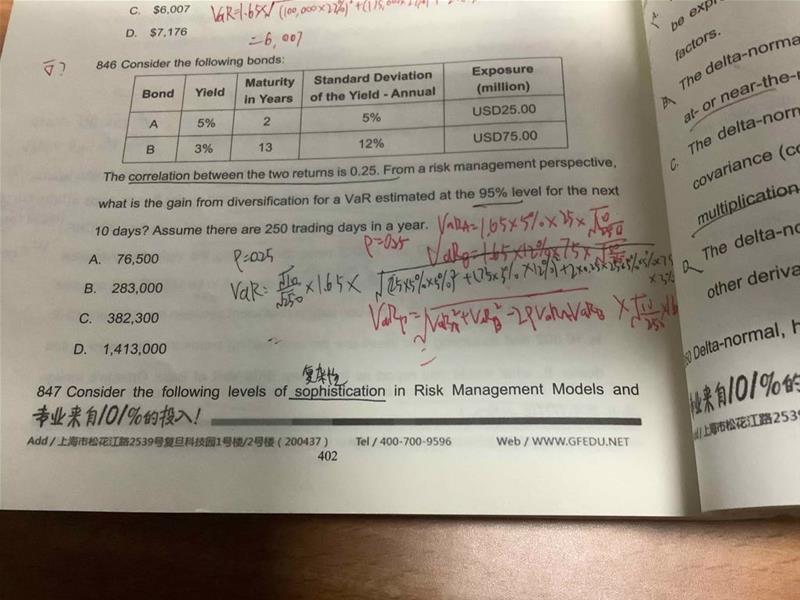 C. $6,007
VaR=1.65×
D. $7,176
=6,007
846 Consider the following bonds:
Bond Yield Maturity in Years Standard Deviation of the Yield - Annual Exposure (million)
A 5% 2 5% USD25.00
B 3% 13 12% USD75.00
The correlation between the two returns is 0.25. From a risk management perspective,
what is the gain from diversification for a VaR estimated at the 95% level for the next
10 days? Assume there are 250 trading days in a year.
VaRA=1.65×5%×25×√10/250
ρ=0.25
VaRB=1.65×12%×75×√10/250
A. 76,500
ρ=0.25
B. 283,000
VaR=√10/√250×1.65×
C. 382,300
VaRp=√VaRA²+VaRB²-2ρVaRAVaRB
D. 1,413,000
复杂性
847 Consider the following levels of sophistication in Risk Management Models and
专业来自101%的投入!
Add / 上海市松花江路2539号复旦科技园1号楼/2号楼（200437） Tel / 400-700-9596 Web / WWW.GFEDU.NET
402
be
factors.
The delta-norma
at- or near-the-
C. The delta-norm
covariance (co
multiplication
D. The delta-no
other deriva
Delta-normal, h
业来自101%的
上海市松花江路2539